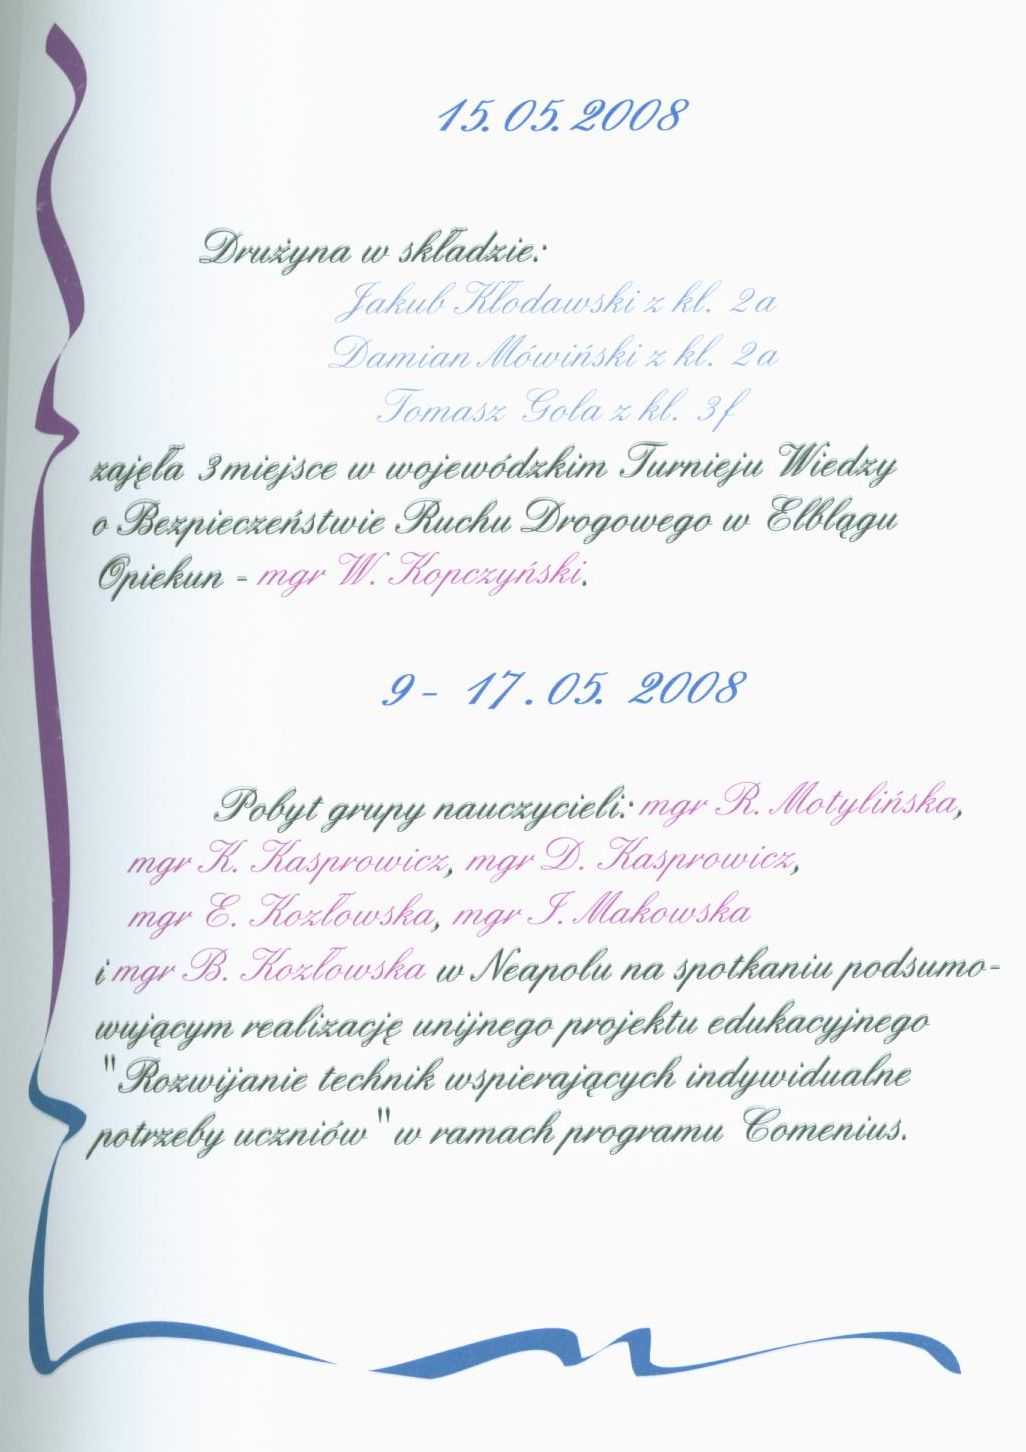 15.05.2008
Drużyna w składzie:
Jakub Kłodawski z kl. 2a
Damian Mówiński z kl. 2a
Tomasz Gola z kl. 3f
zajęła 3 miejsce w wojewódzkim Turnieju Wiedzy
o Bezpieczeństwie Ruchu Drogowego w Elblągu
Opiekun - mgr W. Kopczyński.
9 - 17.05. 2008
Pobyt grupy nauczycieli: mgr R. Motylińska,
mgr K. Kasprowicz, mgr D. Kasprowicz,
mgr E. Kozłowska, mgr I. Makowska
i mgr B. Kozłowska w Neapolu na spotkaniu podsumo-
wującym realizację unijnego projektu edukacyjnego
"Rozwijanie technik wspierających indywidualne
potrzeby uczniów" w ramach programu Comenius.